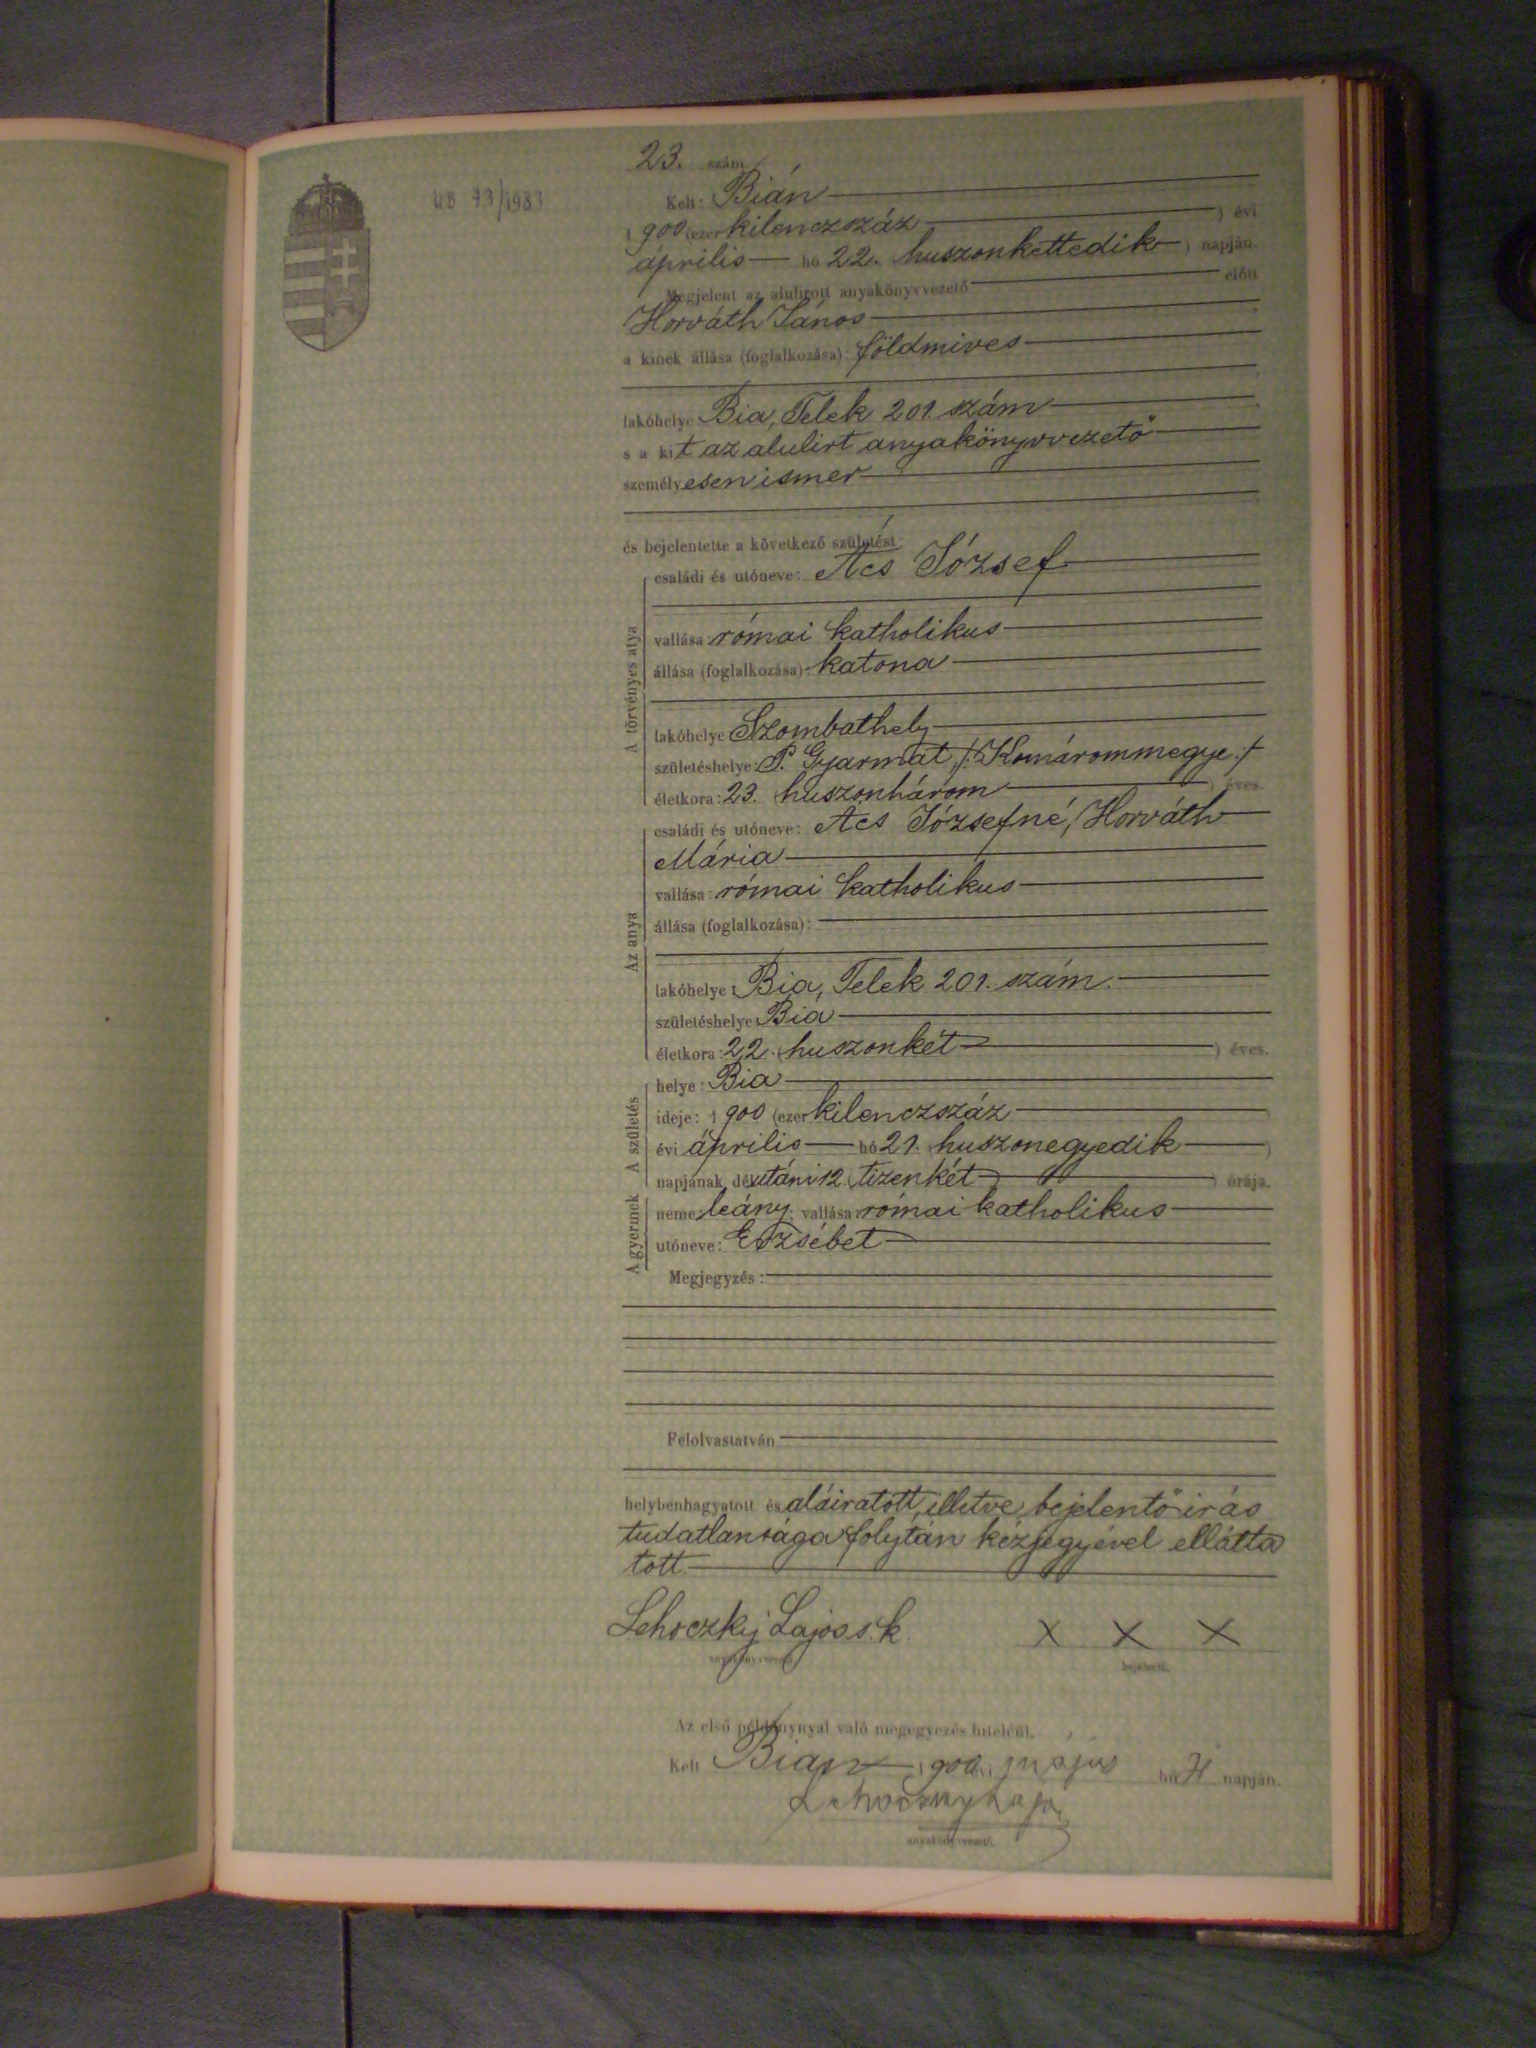 23. szám.
UB 73/1983
Kelt: Bián
1900 (ezer kilenczszáz) évi
április hó 22. (huszonkettedik) napján.
Megjelent az alulirott anyakönyvvezető előtt
Horváth János
a kinek állása (foglalkozása): földmives
lakóhelye: Bia, Telek 201. szám
s a kit az alulirt anyakönyvvezető
személyesen ismer
és bejelentette a következő születést:
A törvényes atya
családi és utóneve: Ács József
vallása: római katholikus
állása (foglalkozása): katona
lakóhelye: Szombathely
születéshelye: P. Gyarmat, /: Komárommegye :/
életkora: 23. (huszonhárom) éves.
Az anya
családi és utóneve: Ács Józsefné, Horváth
Mária
vallása: római katholikus
állása (foglalkozása):
lakóhelye: Bia, Telek 201. szám.
születéshelye: Bia
életkora: 22. (huszonkét) éves.
A születés
helye: Bia
ideje: 1900 (ezer kilenczszáz
évi április hó 21. (huszonegyedik)
napjának délutáni 12. (tizenkét) órája.
A gyermek
neme: leány; vallása: római katholikus
utóneve: Erzsébet
Megjegyzés:
Felolvastatván
helybenhagyatott és aláiratott, illetve bejelentő irás
tudatlansága folytán kézjegyével ellátta
tott.
Lehoczky Lajos s. k. X X X
anyakönyvvezető bejelentő.
Az első példánynyal való megegyezés hiteléül.
Kelt Bian 1900. évi május hó napján.
Lehoczky Lajos
anyakönyvvezető.